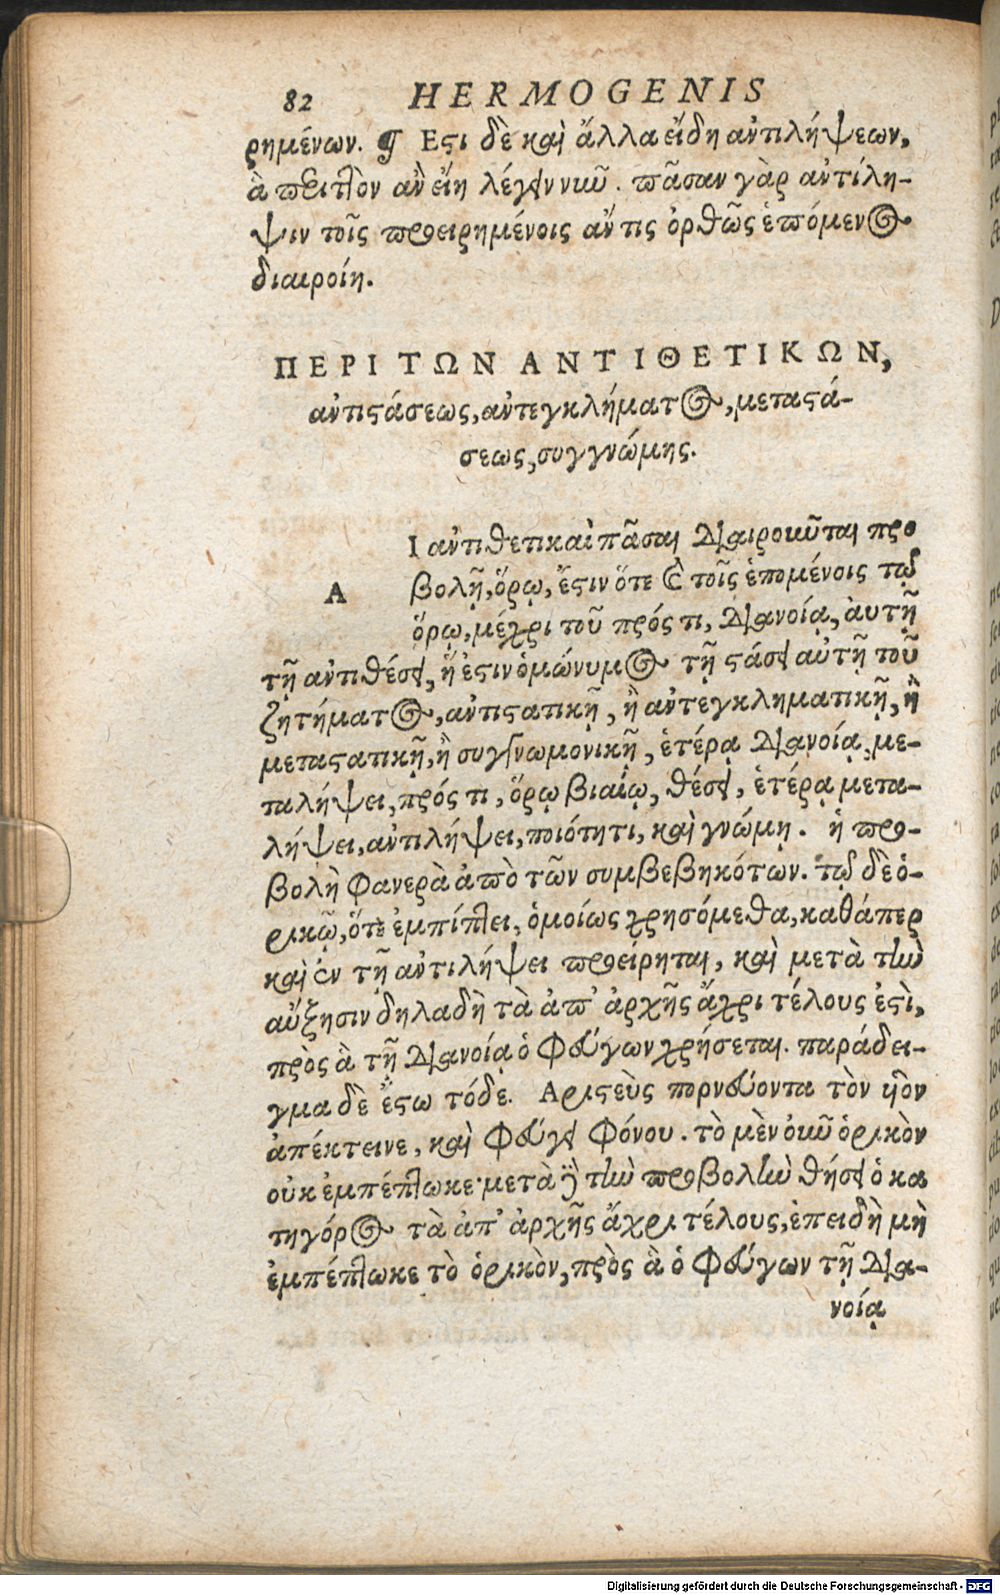 82 HERMOGENIS
ρημένων. ¶ Εςι δὲ καὶ ἄλλα εἴδη ἀντιλήψεων,
ἃ περιττὸν ἂν εἴη λέγειν νῦν. πᾶσαν γὰρ ἀντίλη-
ψιν τοῖς προειρημένοις ἄν τις ὀρθῶς ἑπόμενος
διαιροίη.
ΠΕΡΙ ΤΩΝ ΑΝΤΙΘΕΤΙΚΩΝ,
ἀντιςάσεως, ἀντεγκλήματος, μεταςά-
σεως, συγγνώμης.
ΑΙ ἀντιθετικαὶ πᾶσαι διαιροῦνται προ
βολῇ, ὅρῳ, ἔςιν ὅτε καὶ τοῖς ἑπομένοις τῷ
ὅρῳ, μέχρι τοῦ πρός τι, διανοίᾳ, αὐτῇ
τῇ ἀντιθέσει, ἥ ἐςιν ὁμώνυμος τῇ ςάσει αὐτῇ τοῦ
ζητήματος, ἀντιςατικῇ, ἢ ἀντεγκληματικῇ, ἢ
μεταςατικῇ, ἢ συγγνωμονικῇ, ἑτέρᾳ διανοίᾳ, με-
ταλήψει, πρός τι, ὅρῳ βιαίῳ, θέσει, ἑτέρᾳ μετα-
λήψει, ἀντιλήψει, ποιότητι, καὶ γνώμῃ. ἡ προ-
βολὴ φανερὰ ἀπὸ τῶν συμβεβηκότων. τῷ δὲ ὁ-
ρικῷ, ὅτε ἐμπίπτει, ὁμοίως χρησόμεθα, καθάπερ
καὶ ἐν τῇ ἀντιλήψει προείρηται, καὶ μετὰ τὴν
αὔξησιν δηλαδὴ τὰ ἀπ' ἀρχῆς ἄχρι τέλους ἐςὶ,
πρὸς ἃ τῇ διανοίᾳ ὁ φεύγων χρήσεται. παράδει-
γμα δὲ ἔςω τόδε. Αριςεὺς πορνεύοντα τὸν υἱὸν
ἀπέκτεινε, καὶ φεύγει φόνου. τὸ μὲν οὖν ὁρικὸν
οὐκ ἐμπέπτωκε· μετὰ γὰρ τὴν προβολὴν θήσει ὁ κα
τήγορος τὰ ἀπ' ἀρχῆς ἄχρι τέλους, ἐπειδὴ μὴ
ἐμπέπτωκε τὸ ὁρικὸν, πρὸς ἃ ὁ φεύγων τῇ δια-
νοίᾳ
Digitalisierung gefördert durch die Deutsche Forschungsgemeinschaft - DFG